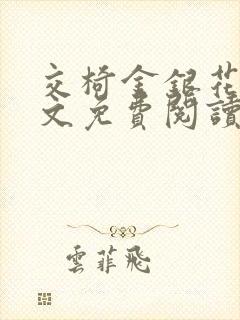 交椅金銀花
文免費閱讀
雲菲飛